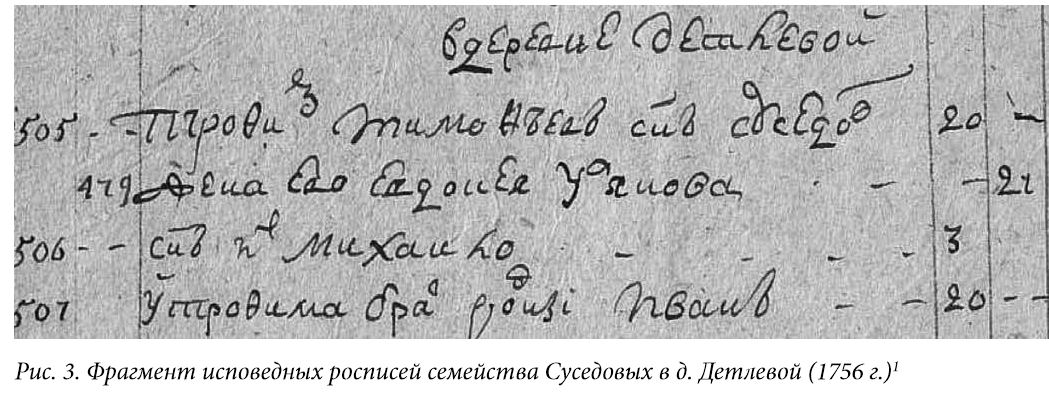 в деревне Деталевой
505 - - Трофи м Тимофѣевъ сн҃ъ Суседов 20 -
479 Жена ево Евдокия Ульянова - - 21
506 - - сн҃ъ их Михаило - - - - 3
507 У Трофима брат родны Иванъ - - 20 - -
Рис. 3. Фрагмент исповедных росписей семейства Суседовых в д. Детлевой (1756 г.)¹